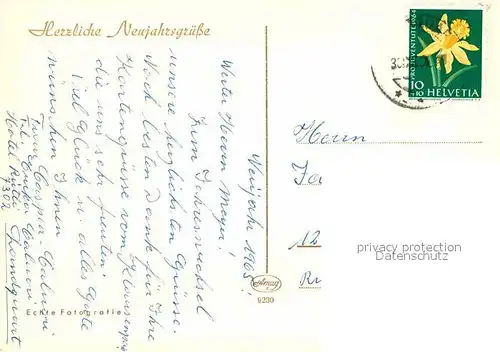 Herzliche Neujahrsgrüße
Neujahr 1965!
Werter Herr Meyer!
Zum Jahreswechsel
unsere herzlichsten Grüsse.
Noch besten Dank für Ihre
Kartengrüsse vom Klausenpass
die uns sehr freuten!
Viel Glück u. alles Gute
wünschen Ihnen
Hotel
7302 Landquart
Echte Fotografie
9230
PRO JUVENTUTE 1964
10
+10
HELVETIA
Herrn
12
privacy protection
Datenschutz